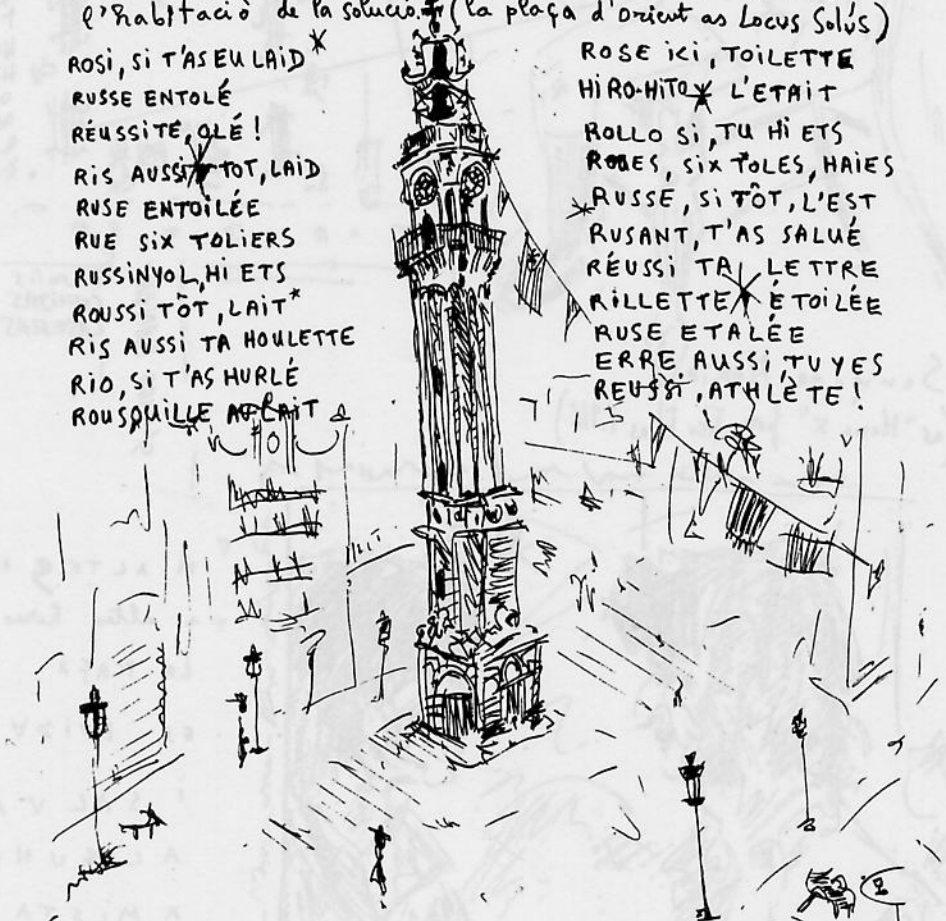 l'habitació de la solució. (la plaça d'orient as Locus Solús)
ROSI, SI T'AS EU LAID*
RUSSE ENTOLÉ
RÉUSSITE, OLÉ !
RIS AUSSITOT, LAID
RUSE ENTOILÉE
RUE SIX TOLIERS
RUSSINYOL, HI ETS
ROUSSI TÔT, LAIT*
RIS AUSSI TA HOULETTE
RIO, SI T'AS HURLÉ
ROUSQUILLE AU LAIT
ROSE ICI, TOILETTE
HIRO-HITO L'ETAIT
ROLLO SI, TU HI ETS
ROUES, SIX TOLES, HAIES
*RUSSE, SI TÔT, L'EST
RUSANT, T'AS SALUÉ
RÉUSSI TA LETTRE
RILLETTE ÉTOILÉE
RUSE ETALÉE
ERRE AUSSI, TU YES
REUSSI, ATHLÈTE !